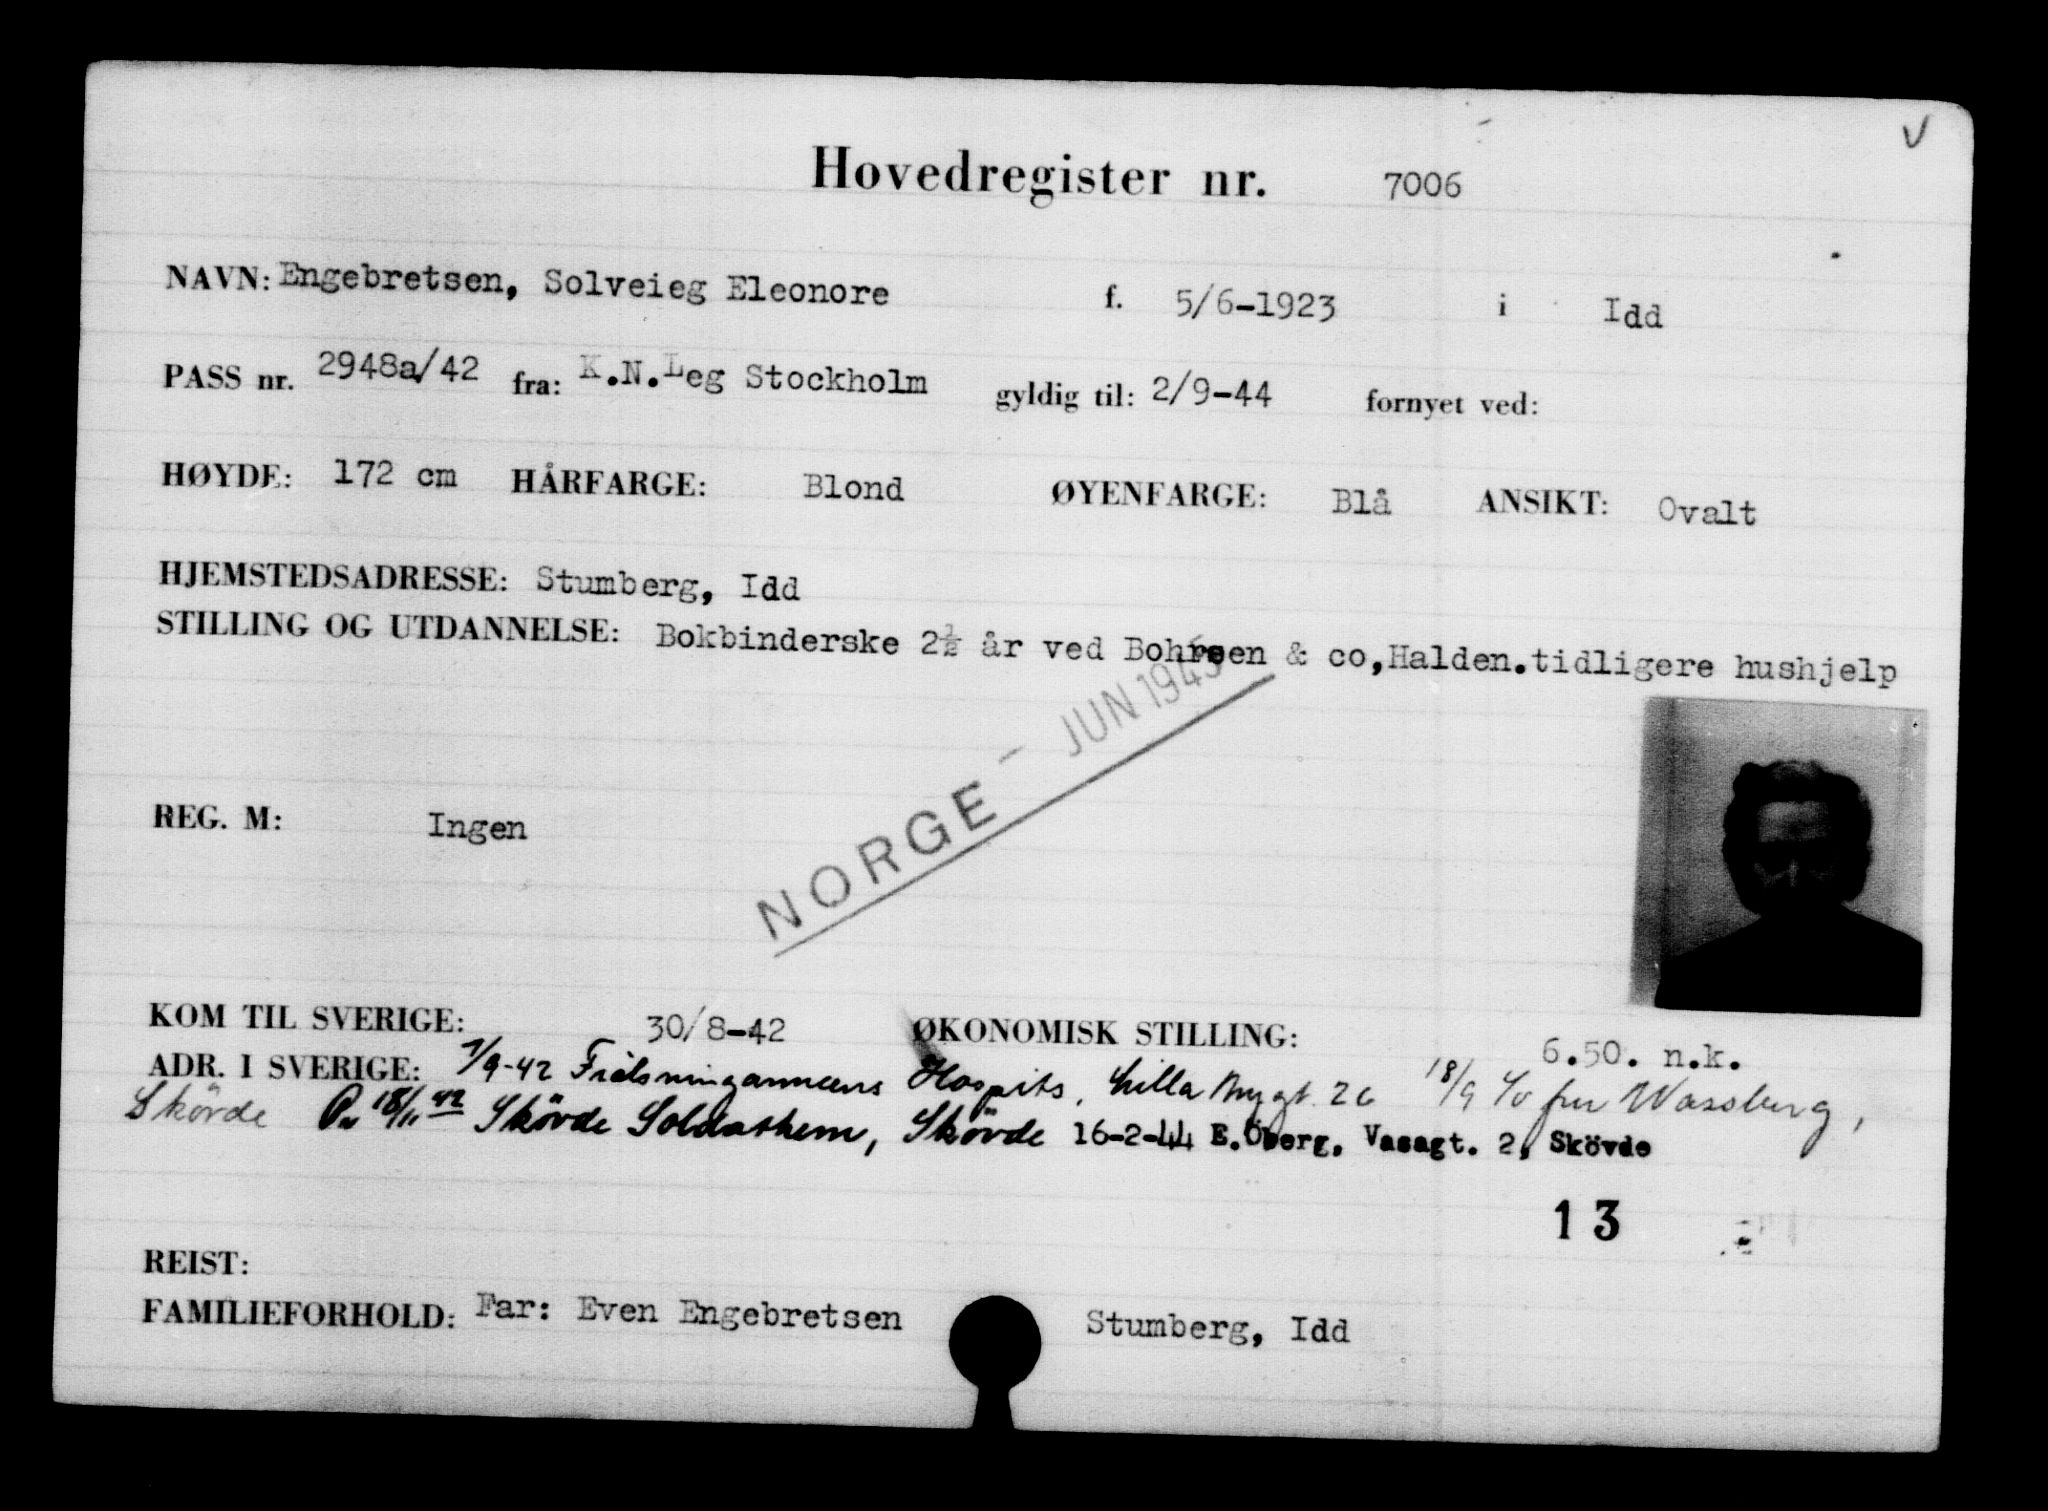 V
Hovedregister nr. 7006
NAVN: Engebretsen, Solveieg Eleonore f. 5/6-1923 i Idd
PASS nr. 2948a/42 fra: K.N.Leg Stockholm gyldig til: 2/9-44 fornyet ved:
HØYDE: 172 cm HÅRFARGE: Blond ØYENFARGE: Blå ANSIKT: Ovalt
HJEMSTEDSADRESSE: Stumberg, Idd
STILLING OG UTDANNELSE: Bokbinderske 2½ år ved & co,Halden.tidligere hushjelp
NORGE - JUN 1945
REG. M: Ingen
KOM TIL SVERIGE: 30/8-42 ØKONOMISK STILLING: 6.50. n.k.
ADR. I SVERIGE: 7/9-42 Hospits, Lilla 26 18/9 c/o fru Wassberg,
Skövde 18/11 42 Skövde Soldathem, Skövde 16-2-44 E.Öberg, Vasagt. 2, Skövde
13
REIST:
FAMILIEFORHOLD: Far: Even Engebretsen Stumberg, Idd